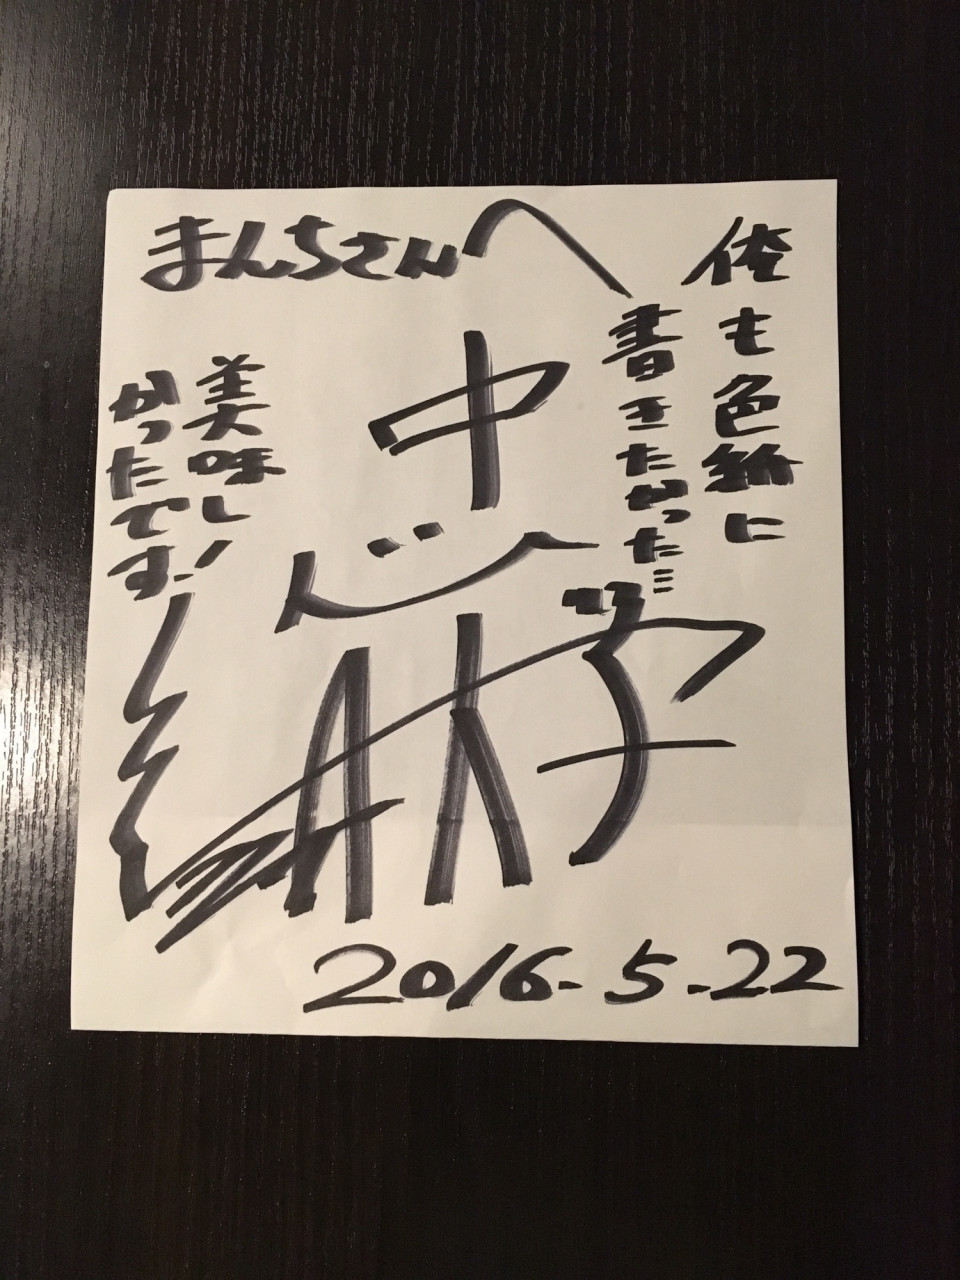 まんちさんへ
俺も色紙に
書きたかった…
美味し
かったです!
2016.5.22